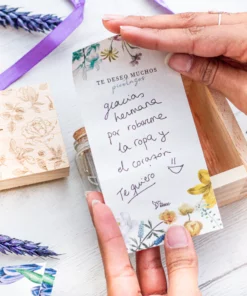 TE DESEO MUCHOS
gracias
hermana
por robarme
la ropa y
el corazón
Te quiero